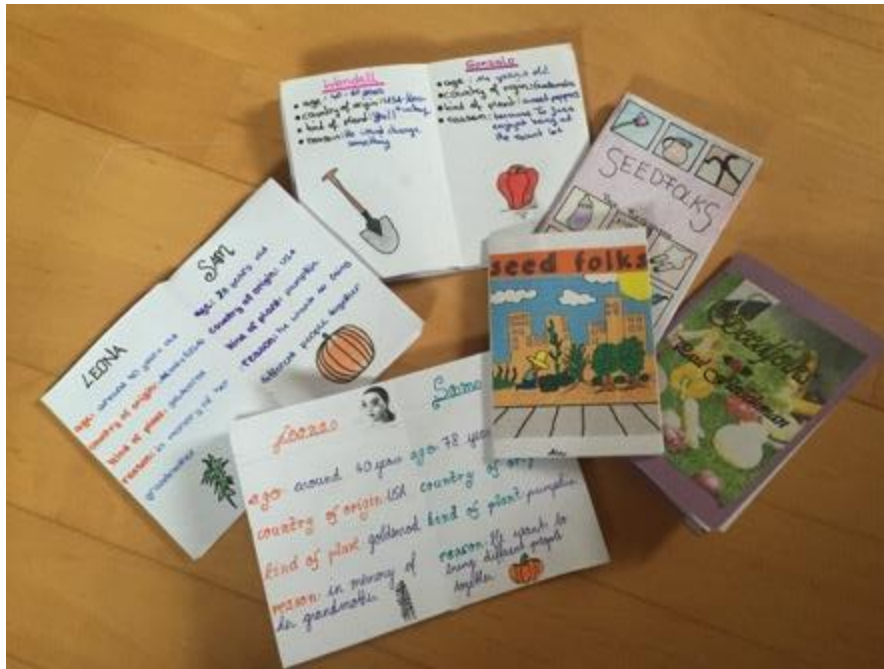 Wendell
• age:
• country of origin: USA
• kind of plant:
• reason: He want change
something
Gonzalo
• age: 14 years old
• country of origin: Guatemala
• kind of plant: sweet peppers
• reason: because Tío Juan
enjoyed being at
the vacant lot
SEEDFOLKS
seed folks
Seedfolks
Paul Fleischman
LEONA
age: around 40 years old
country of origin:
kind of plant: goldenrod
reason: in memory of her
grandmother
SAM
age: 78 years old
country of origin: USA
kind of plant: pumpkin
reason: he want to bring
different people together
Leona
age: around 40 years
country of origin: USA
kind of plant: goldenrod
reason: in memory of
grandmother
Sam
age: 78 years
country of
kind of plant: pumpkin
reason: He want to
bring different people
together